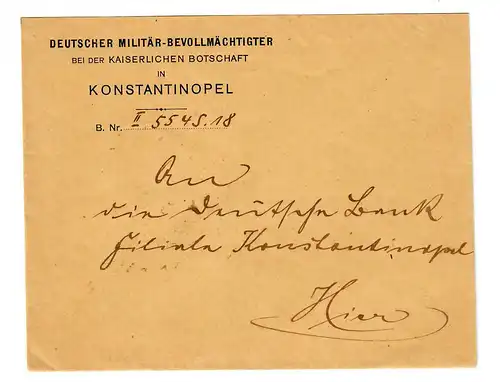 DEUTSCHER MILITÄR-BEVOLLMÄCHTIGTER
BEI DER KAISERLICHEN BOTSCHAFT
IN
KONSTANTINOPEL
B. Nr. II 5545.18
An
die Deutsche Bank
Filiale Konstantinopel
Hier